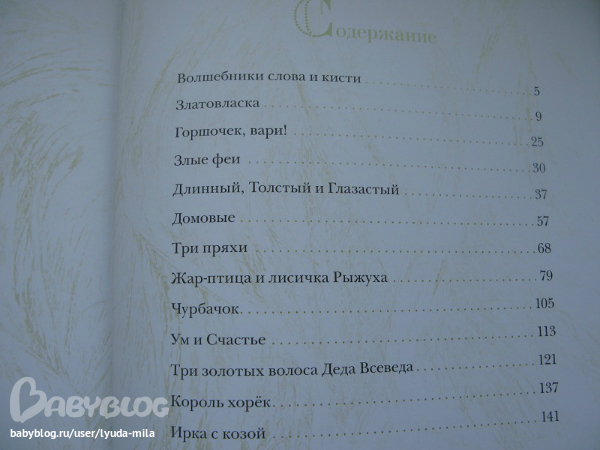 Содержание
Волшебники слова и кисти 5
Златовласка 9
Горшочек, вари! 25
Злые феи 30
Длинный, Толстый и Глазастый 37
Домовые 57
Три пряхи 68
Жар-птица и лисичка Рыжуха 79
Чурбачок 105
Ум и Счастье 113
Три золотых волоса Деда Всеведа 121
Король хорёк 137
Ирка с козой 141
BABYBLOG
babyblog.ru/user/lyuda-mila